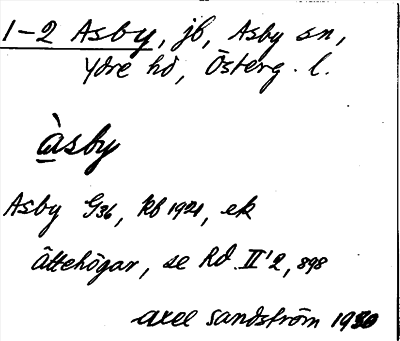 1-2 Asby, jb, Asby sn,
Ydre hd, Österg. l.
àsby
Asby G36, kb 1921, ek
ättehögar, se Rd II'2, 898
Axel Sandström 1930